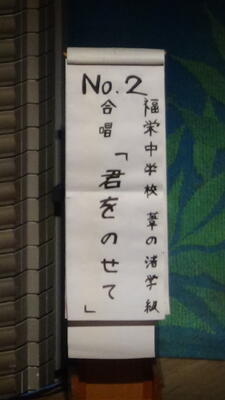 No.2
福栄中学校 葦の渚学級
合唱
「君をのせて」